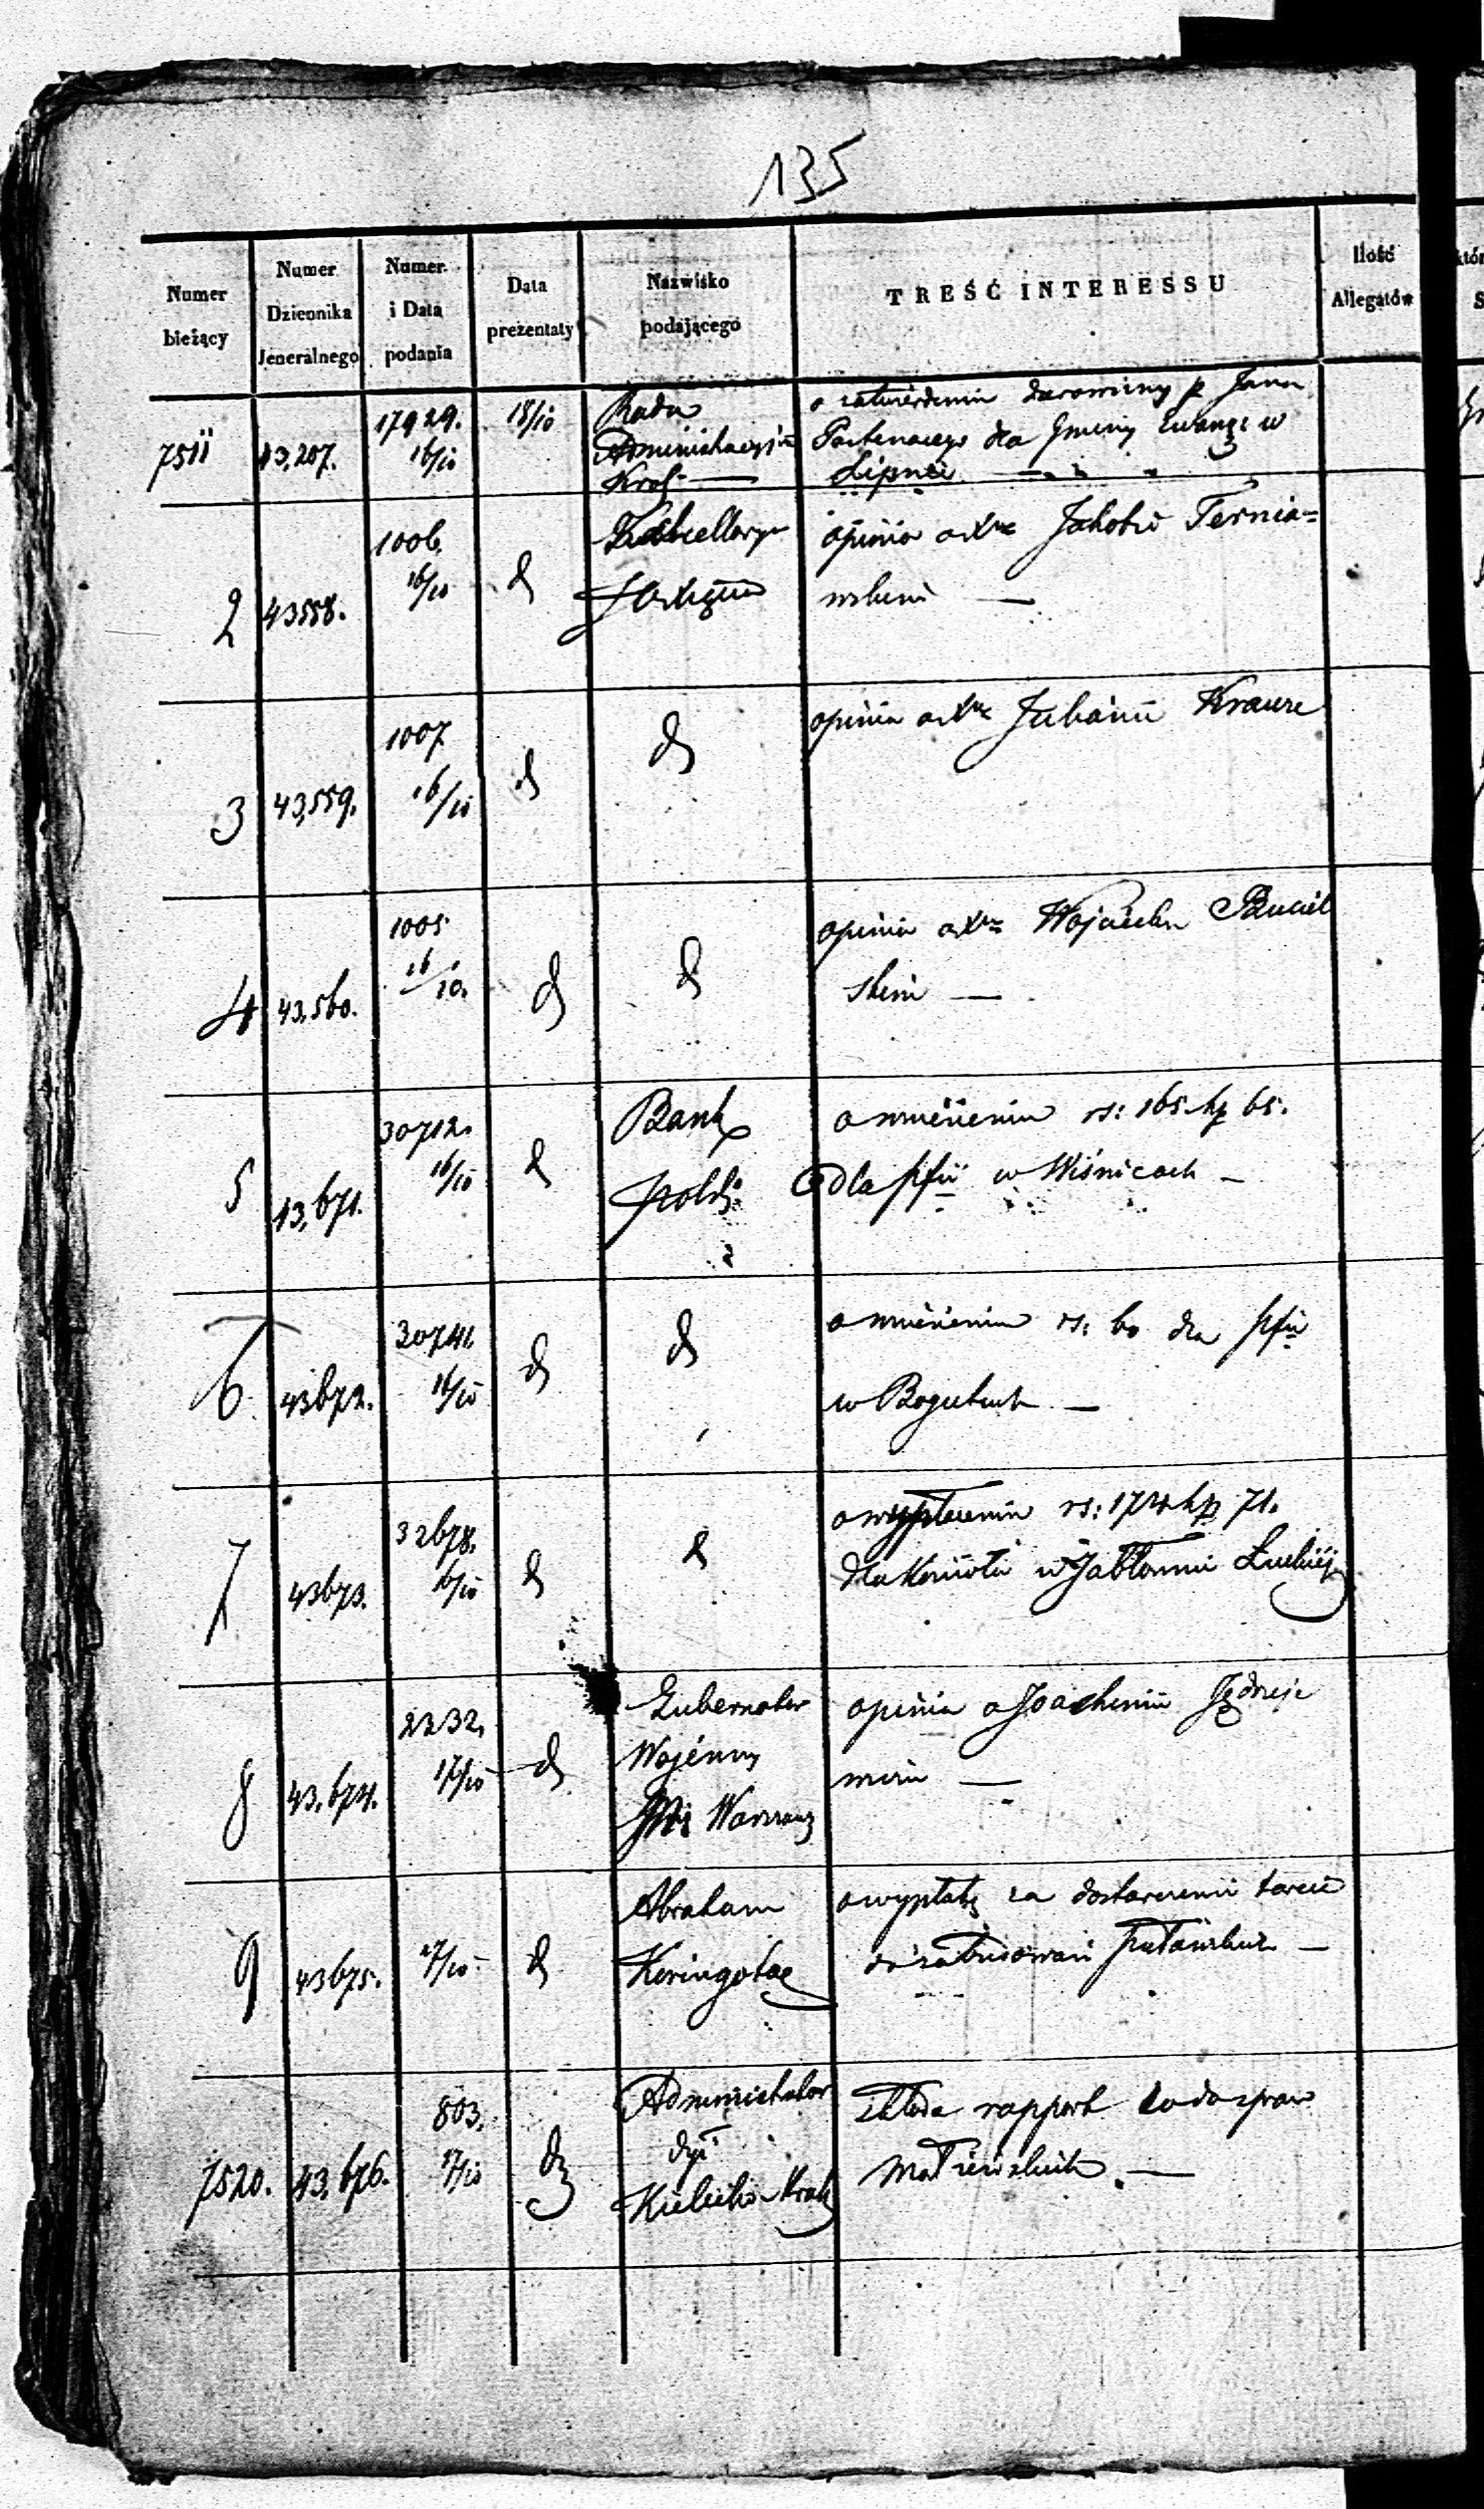 135
Numer bieżący
Numer Dziennika Jeneralnego
Numer i Data podania
Data prezentaty
Nazwisko podającego
TREŚĆ INTERESSU
Ilość Allegatów
7511
43,207.
17929.
16/10
18/10
Rada
Administracyjna
Król.
o zatwierdzenie darowizny p Jana
dla Gminy Ewang: w
Lipnie
2
43558.
1006.
16/10
d
opinia o Xdze Jakobie
3
43,559.
1007
16/10
d
d
opinia o Xdze Julianie Krauze
4
43,560.
1005
16/10.
d
d
opinia o Xdze Wojciechu
skim —
5
43,671.
30712.
16/10
d
Bank
Polski
o wniesieniu rs: 165 kp 65.
dla w Wiśnicach —
6
43672.
30741.
16/10
d
d
o wniesieniu rs: 60 dla
w —
7
43673.
32678.
16/10
d
d
o wypłacenie rs: 174 kp 71.
dla Kościoła w Jabłonnie
8
43,674.
2232.
17/10
d
Gubernator
Wojenny
Warszawy
opinia o Joachimie Jędrzeje
wiczu —
9
43675.
17/10
d
Abraham
o wypłatę za dostarczenie tarcic
do zabudowań —
7520.
43,676.
803.
17/10
d
Administrator
dyz
Kielecko-Krak
składa rapport co do spraw
Małżeńskich —